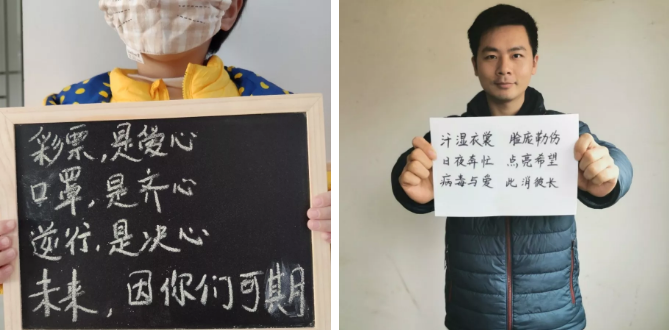 彩票,是爱心
口罩,是齐心
逆行,是决心
未来,因你们可期
汗湿衣裳 脸庞勒伤
日夜奔忙 点亮希望
病毒与爱 此消彼长